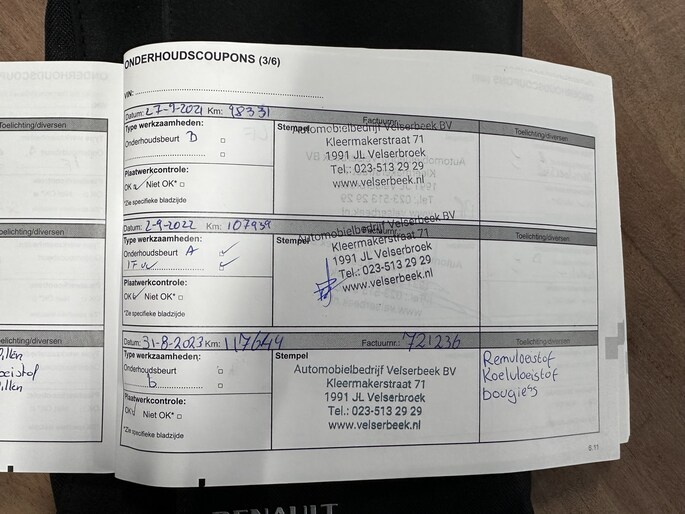 ONDERHOUDSCOUPONS (3/6)
VIN:
Datum: 27-9-2021 Km: 98331 Factuurnr.:
Toelichting/diversen
Type werkzaamheden:
Onderhoudsbeurt D
Plaatwerkcontrole:
OK Niet OK*
*Zie specifieke bladzijde
Stempel
Automobielbedrijf Velserbeek BV
Kleermakerstraat 71
1991 JL Velserbroek
Tel.: 023-513 29 29
www.velserbeek.nl
Datum: 2-9-2022 Km: 107939 Factuurnr.
Toelichting/diversen
Type werkzaamheden:
Onderhoudsbeurt A
Plaatwerkcontrole:
OK Niet OK*
*Zie specifieke bladzijde
Stempel
Automobielbedrijf Velserbeek BV
Kleermakerstraat 71
1991 JL Velserbroek
Tel.: 023-513 29 29
www.velserbeek.nl
Datum: 31-8-2023 Km: 117644 Factuurnr.: 721236
Toelichting/diversen
Type werkzaamheden:
Onderhoudsbeurt
b
Plaatwerkcontrole:
OK Niet OK*
*Zie specifieke bladzijde
Stempel
Automobielbedrijf Velserbeek BV
Kleermakerstraat 71
1991 JL Velserbroek
Tel.: 023-513 29 29
www.velserbeek.nl
Remvloeistof
Koelvloeistof
bougies
5.11
Toelichting/diversen
Toelichting/diversen
elichting/diversen
RENAULT